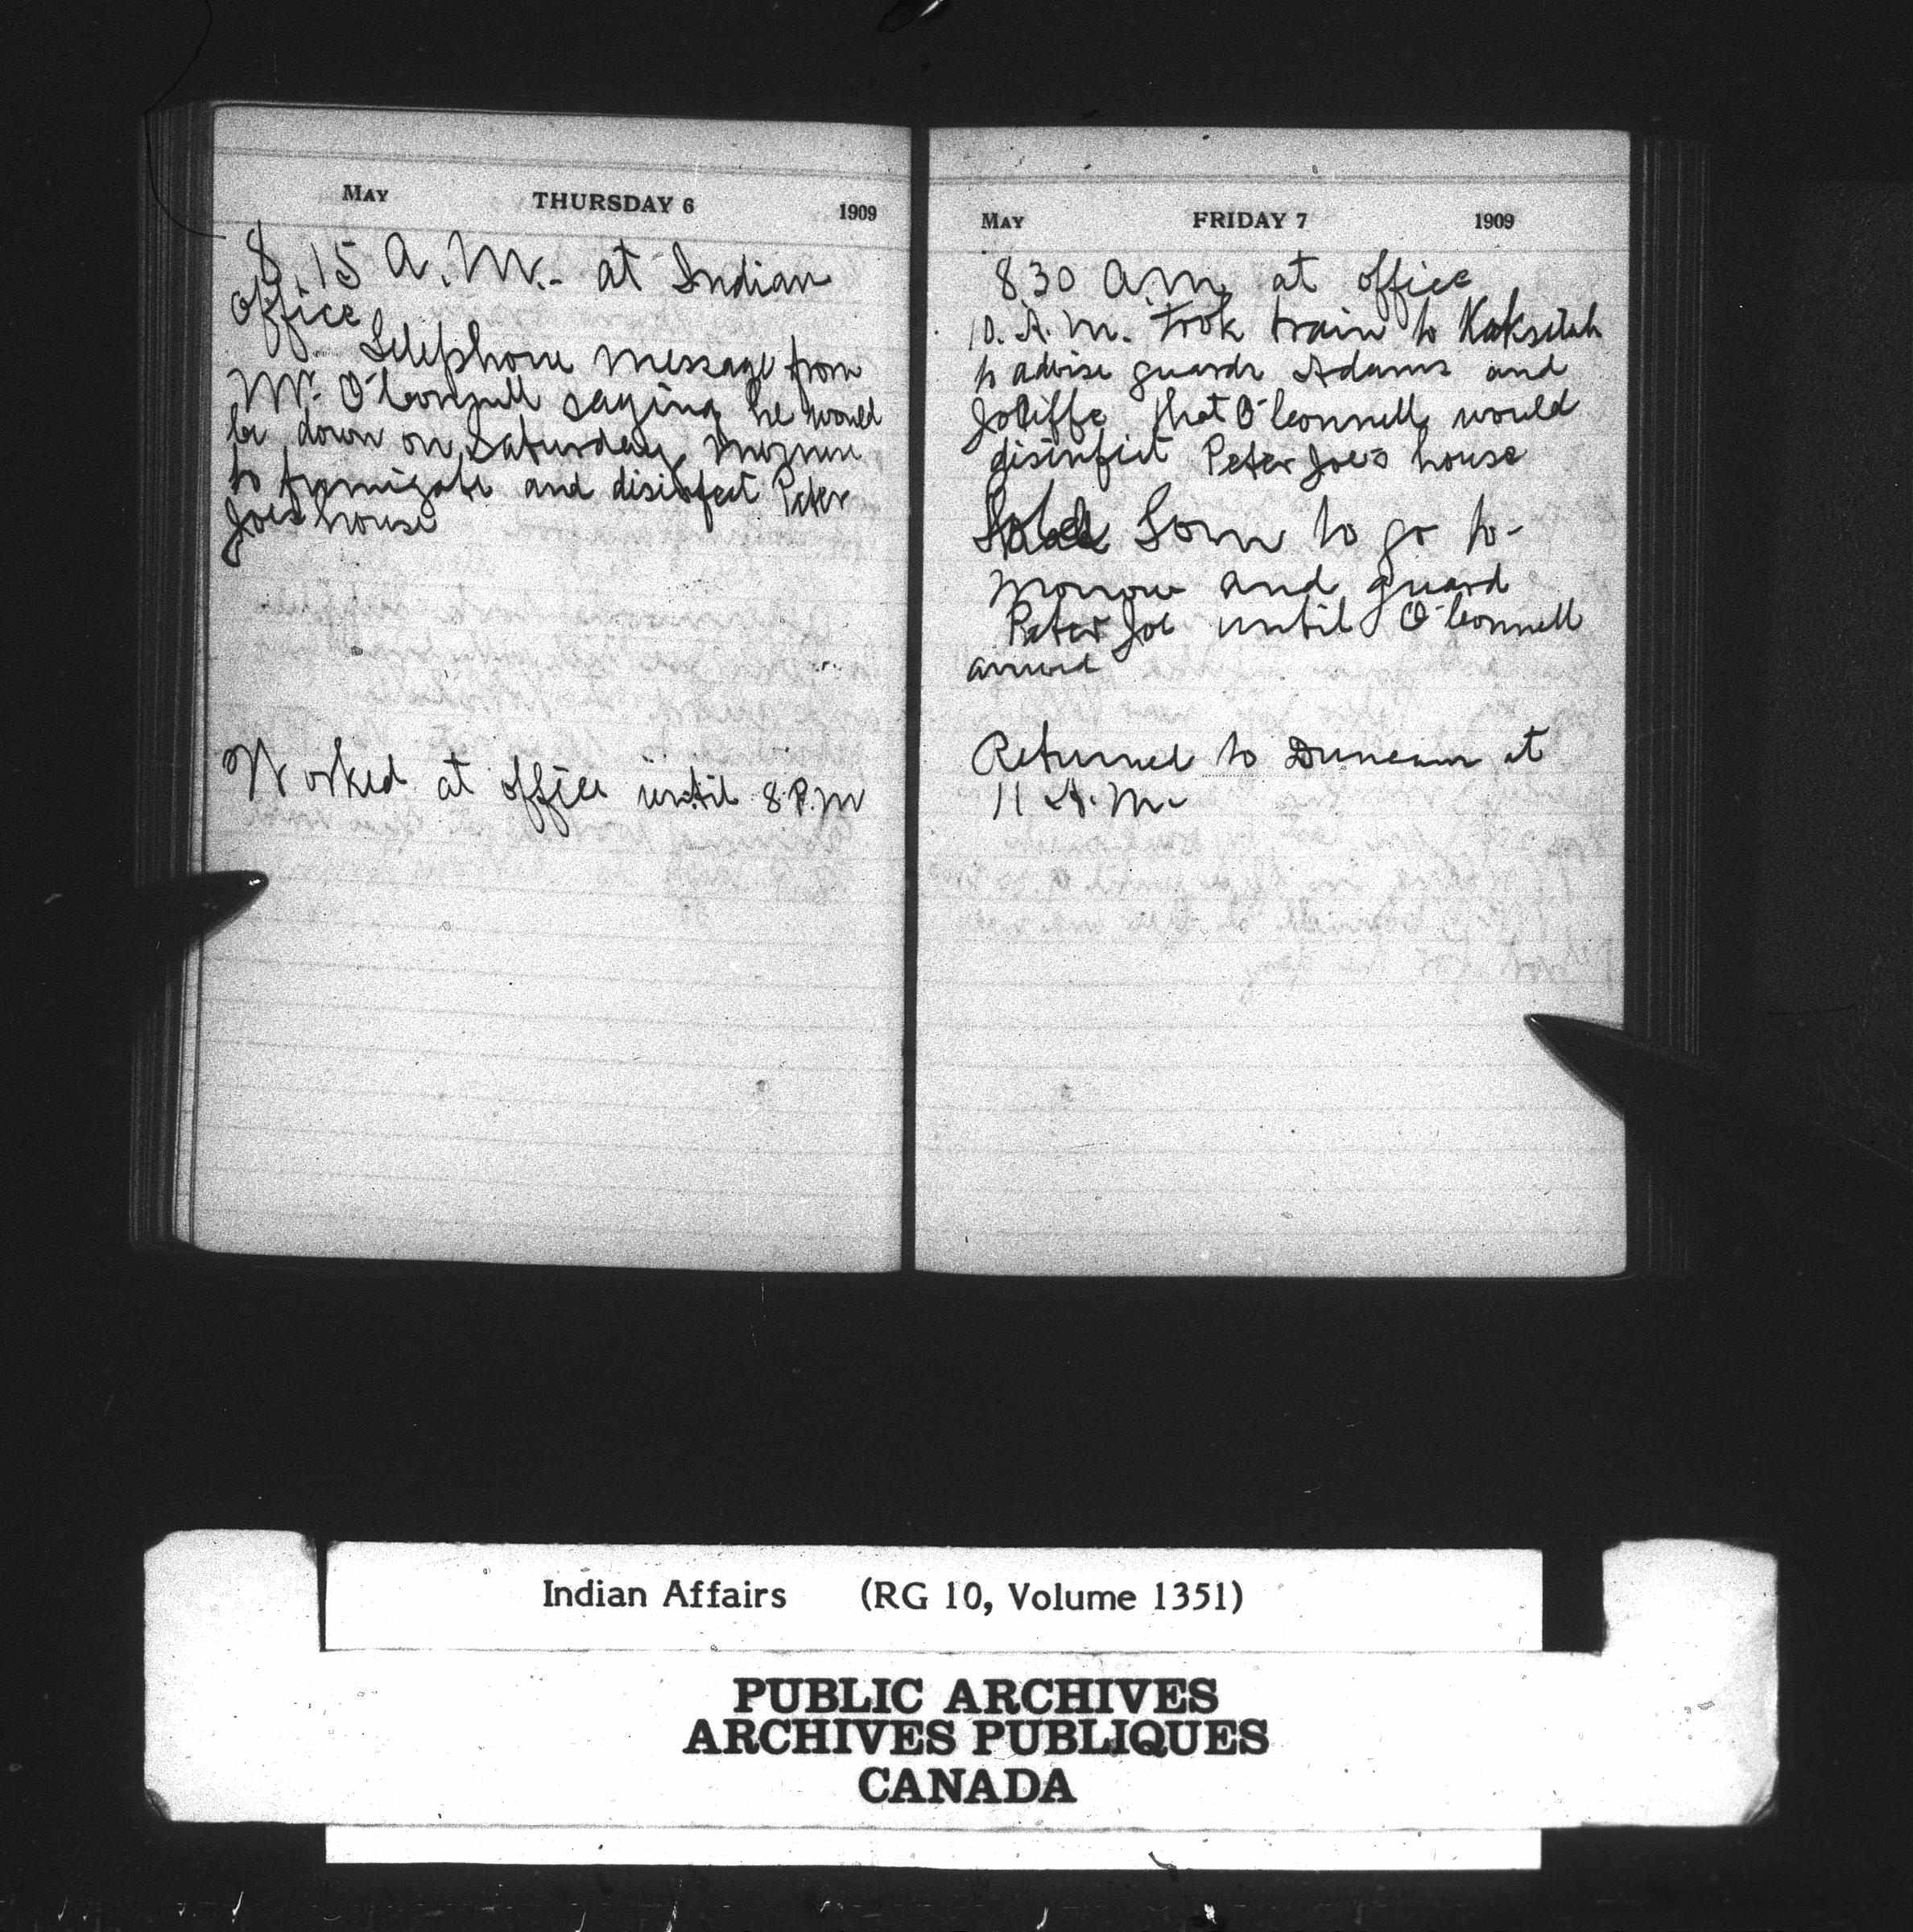 May THURSDAY 6 1909
8.15 A.M. - at Indian
office
Telephone message from
Mr. O'Connell saying he would
be down on Saturday morning
to fumigate and disinfect Peter
Joe's house
Worked at office until 8 P.M
May FRIDAY 7 1909
8 30 A.M. at office
10. A.M. took train to Koksilah
to advise guards Adams and
Joliffe that O'Connell would
disinfect Peter Joe's house
Told Tom to go to-
morrow and guard
Peter Joe until O'Connell
arrived
Returned to Duncan at
11 A.M.
Indian Affairs (RG 10, Volume 1351)
PUBLIC ARCHIVES
ARCHIVES PUBLIQUES
CANADA